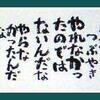 つぶやき
やれなかった
のではない
やらなかったんだ